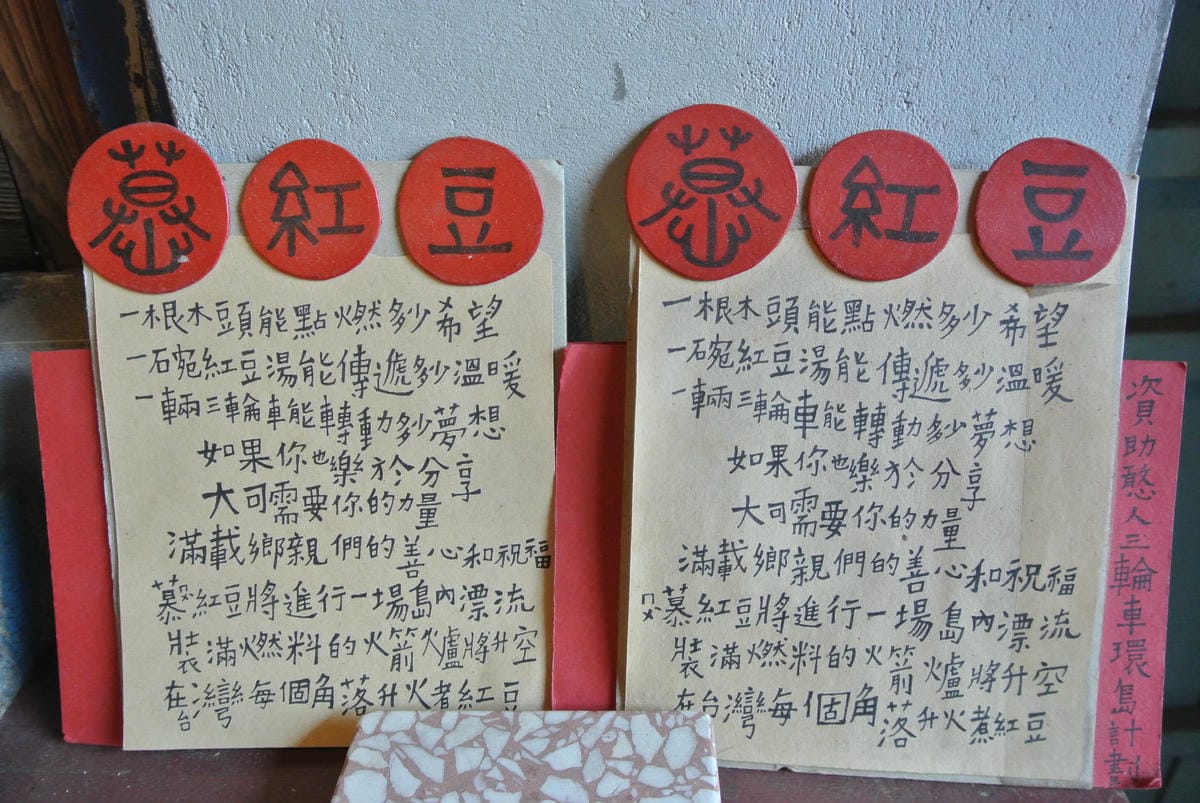 慕紅豆
一根木頭能點燃多少希望
一碗紅豆湯能傳遞多少溫暖
一輛三輪車能轉動多少夢想
如果你也樂於分享
大可需要你的力量
滿載鄉親們的善心和祝福
慕紅豆將進行一場島內漂流
裝滿燃料的火箭爐將升空
在台灣每個角落升火煮紅豆
慕紅豆
一根木頭能點燃多少希望
一碗紅豆湯能傳遞多少溫暖
一輛三輪車能轉動多少夢想
如果你也樂於分享
大可需要你的力量
滿載鄉親們的善心和祝福
慕紅豆將進行一場島內漂流
裝滿燃料的火箭爐將升空
在台灣每個角落升火煮紅豆
資助憨人三輪車環島計劃